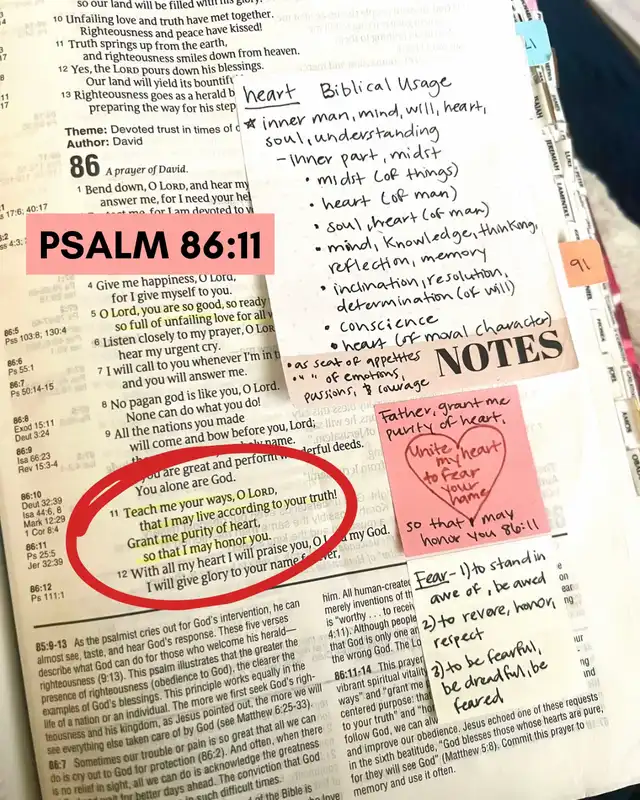 so our land will be filled with his glory.
10 Unfailing love and truth have met together.
Righteousness and peace have kissed!
11 Truth springs up from the earth,
and righteousness smiles down from heaven.
12 Yes, the LORD pours down his blessings.
Our land will yield its bountif
13 Righteousness goes as a herald b
preparing the way for his step
Theme: Devoted trust in times of
Author: David
86 A prayer of David.
1 Bend down, O LORD, and hear my
answer me, for I need your hel
for I am devoted to
PSALM 86:11
4 Give me happiness, O Lord,
for I give myself to you.
5 O Lord, you are so good, so ready
so full of unfailing love for all
6 Listen closely to my prayer, O LORD
hear my urgent cry.
7 I will call to you whenever I'm in t
and you will answer me.
8 No pagan god is like you, O Lord.
None can do what you do!
9 All the nations you made
will come and bow before you, Lord;
holy name.
you are great and perform wonderful deeds.
You alone are God.
11 Teach me your ways, O LORD,
that I may live according to your truth!
Grant me purity of heart,
so that I may honor you.
12 With all my heart I will praise you, O Lord my God.
I will give glory to your name forever,
17:6; 40:17
86:5
Pss 103:8; 130:4
86:6
Ps 55:1
86:7
Ps 50:14-15
86:8
Exod 15:11
Deut 3:24
86:9
Isa 66:23
Rev 15:3-4
86:10
Deut 32:39
Isa 44:6, 8
Mark 12:29
1 Cor 8:4
86:11
Ps 25:5
Jer 32:39
86:12
Ps 111:1
heart Biblical Usage
☆ inner man, mind, will, heart,
soul, understanding
- Inner part, midst
• midst (of things)
• heart (of man)
• soul, heart (of man)
• mind, knowledge, thinking,
reflection, memory
• inclination, resolution,
determination (of will)
• conscience
• heart (of moral character)
• as seat of appetites
• " " of emotions,
passions, & courage
NOTES
Father, grant me
purity of heart,
Unite my heart
to fear
your
name
so that I may
honor you 86:11
Fear - 1) to stand in
awe of, be awed
2) to revere, honor,
respect
3) to be fearful,
be dreadful, be
feared
85:9-13 As the psalmist cries out for God's intervention, he can
almost see, taste, and hear God's response. These five verses
describe what God can do for those who welcome his herald—
righteousness (9:13). This psalm illustrates that the greater the
presence of righteousness (obedience to God), the clearer the
examples of God's blessings. This principle works equally in the
life of a nation or an individual. The more we first seek God's righ-
teousness and his kingdom, as Jesus pointed out, the more we will
see everything else taken care of by God (see Matthew 6:25-33)
86:7 Sometimes our trouble or pain is so great that all we can
do is cry out to God for protection (86:2). And often, when there
is no relief in sight, all we can do is acknowledge the greatness
wait for better days ahead. The conviction that God
in such difficult times.
of the Bible is
him. All human-created
merely inventions of th
is "worthy . . . to receiv
4:11). Although people
that God is only one am
the wrong God. The Lo
86:11-14 This prayer
vibrant spiritual vitality
ways" and "grant me
centered purpose: tha
to your truth" and "ho
follow God, we can alw
and improve our obedience. Jesus echoed one of these requests
in the sixth beatitude, "God blesses those whose hearts are pure,
for they will see God" (Matthew 5:8). Commit this prayer to
memory and use it often.
91
ISAIAH
JEREMIAH
LAMENTAT
LUKE
JOEL
AMOS